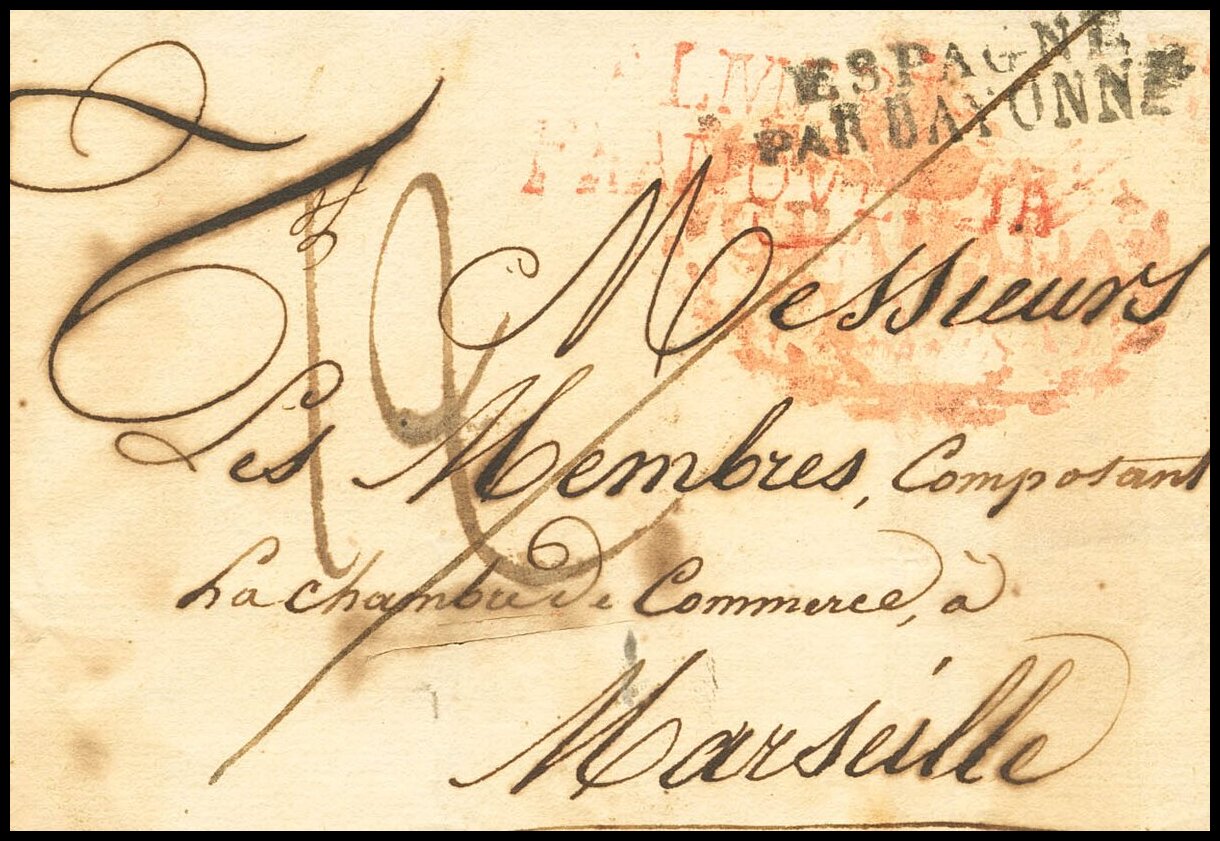 ESPAGNE
PAR BAYONNE
Messieurs
Les Membres, Composant
La chambre de Commerce, à
Marseille